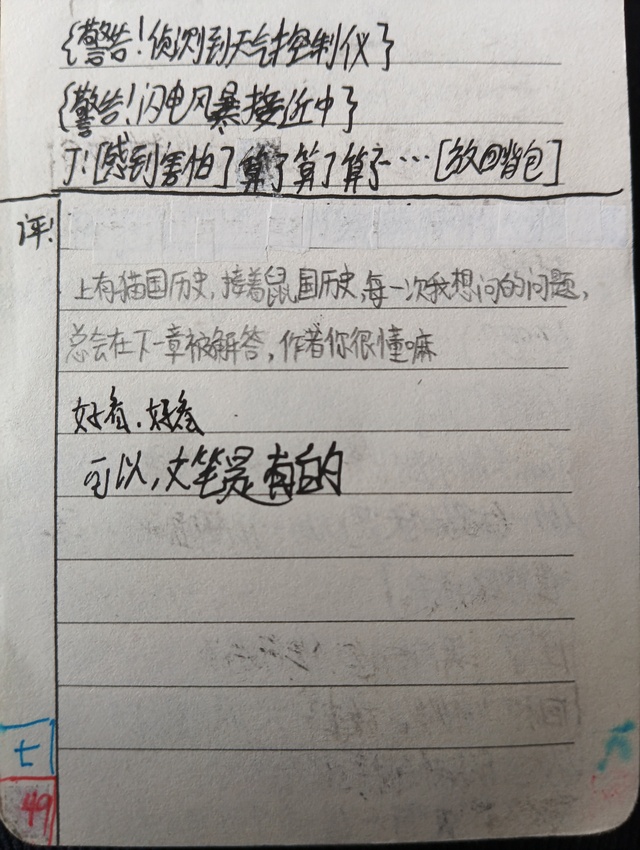 {警告!侦测到天气控制仪}
{警告!闪电风暴接近中}
丁![感到害怕]算了算了算了…[放回背包]
评!
上有猫国历史,接着鼠国历史,每一次我想问的问题,
总会在下一章被解答,作者你很懂嘛
好看.好看
可以,文笔是有的
七
49